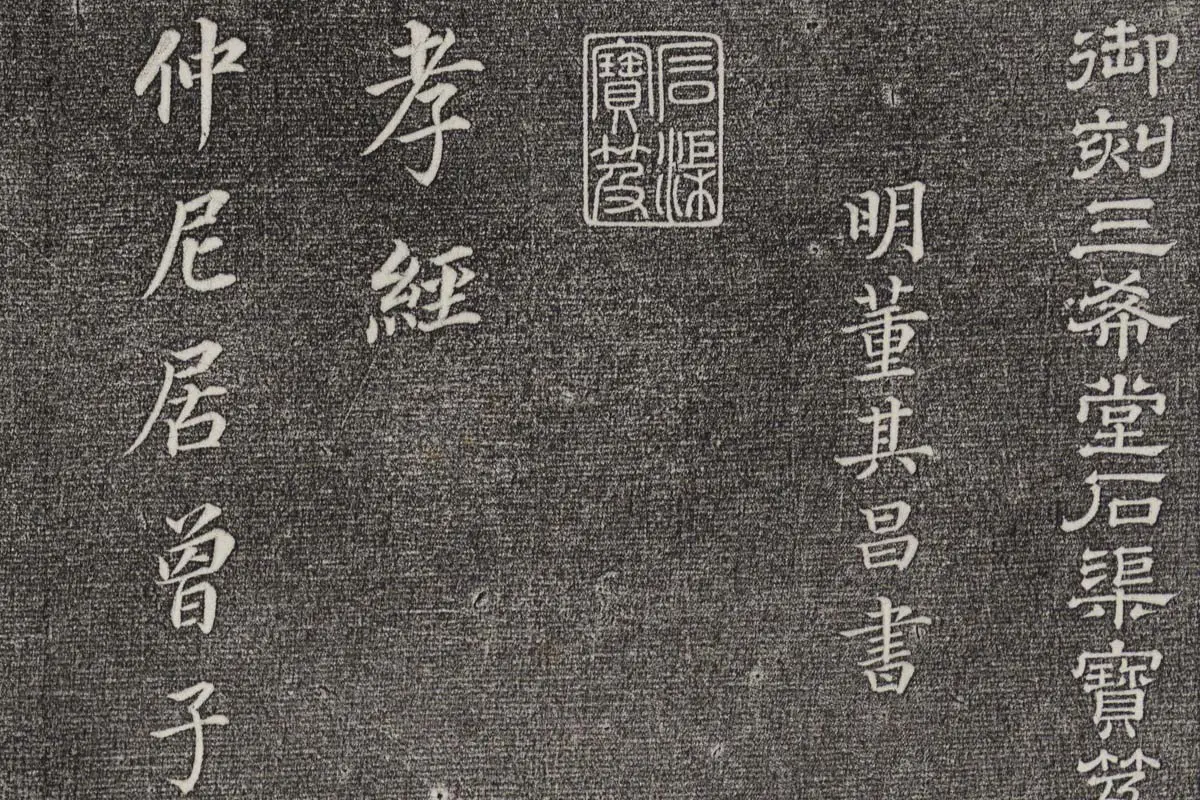 御刻三希堂石渠寶笈
明董其昌書
石渠
寶笈
孝經
仲尼居曾子